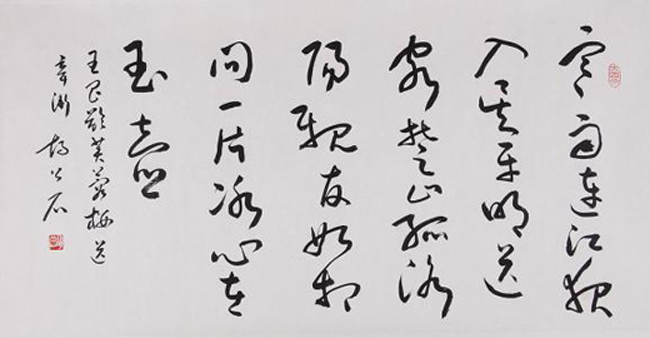 寒雨連江夜
入吴平明送
客楚山孤洛
陽親友如相
問一片冰心在
玉壺
王昌齡芙蓉楼送
辛漸